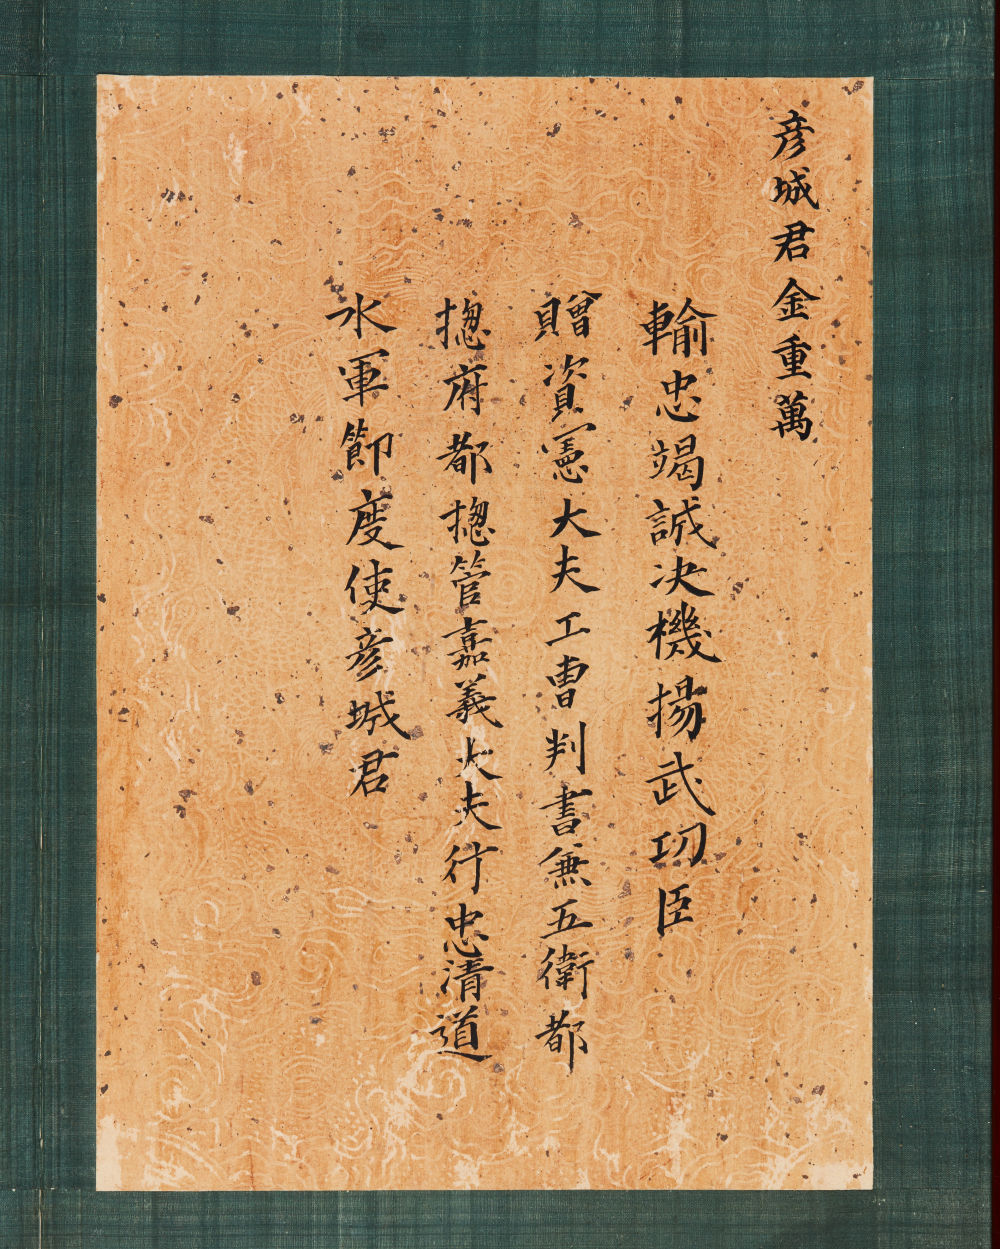 彦城君金重萬
輸忠竭誠决機揚武功臣
贈資憲大夫工曹判書兼五衛都
摠府都摠管嘉義大夫行忠清道
水軍節度使彦城君